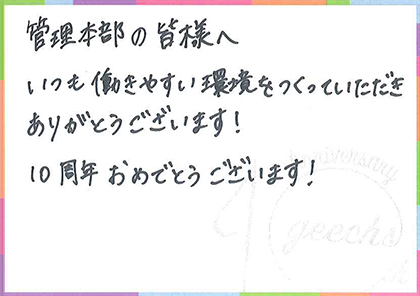 管理本部の皆様へ
いつも働きやすい環境をつくっていただき
ありがとうございます!
10周年おめでとうございます!
anniversary
geechs